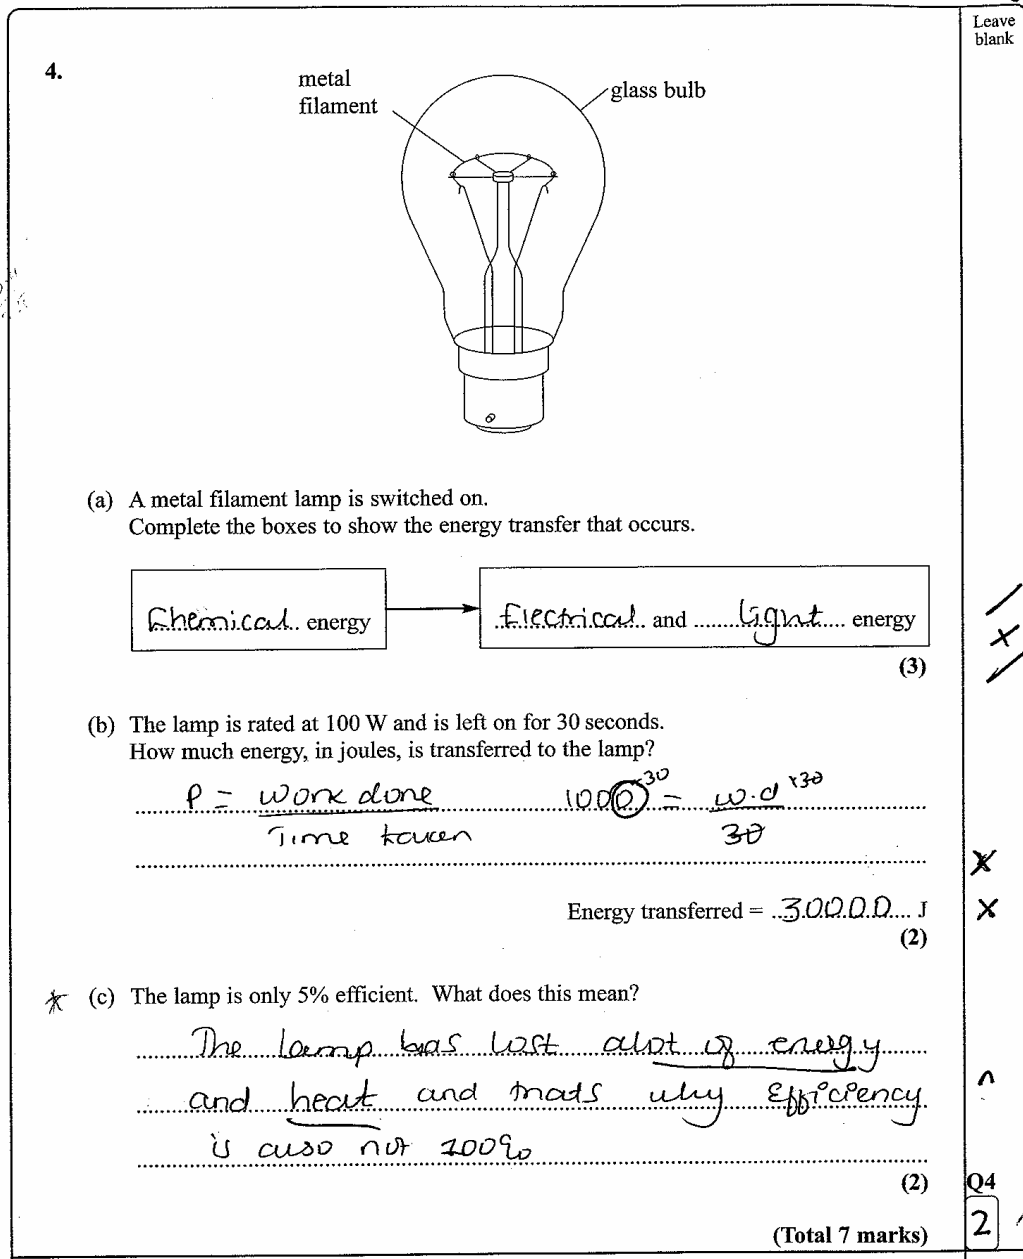 Leave
blank
4.
metal
filament
glass bulb
(a) A metal filament lamp is switched on.
Complete the boxes to show the energy transfer that occurs.
Chemical energy
Electrical and light energy
(3)
(b) The lamp is rated at 100 W and is left on for 30 seconds.
How much energy, in joules, is transferred to the lamp?
P = work done 1000 ×30 = w.d ×30
Time taken 30
Energy transferred = 30000 J
(2)
(c) The lamp is only 5% efficient. What does this mean?
The lamp has lost alot of energy
and heat and thats why efficiency
is also not 100%
(2)
Q4
(Total 7 marks)
2